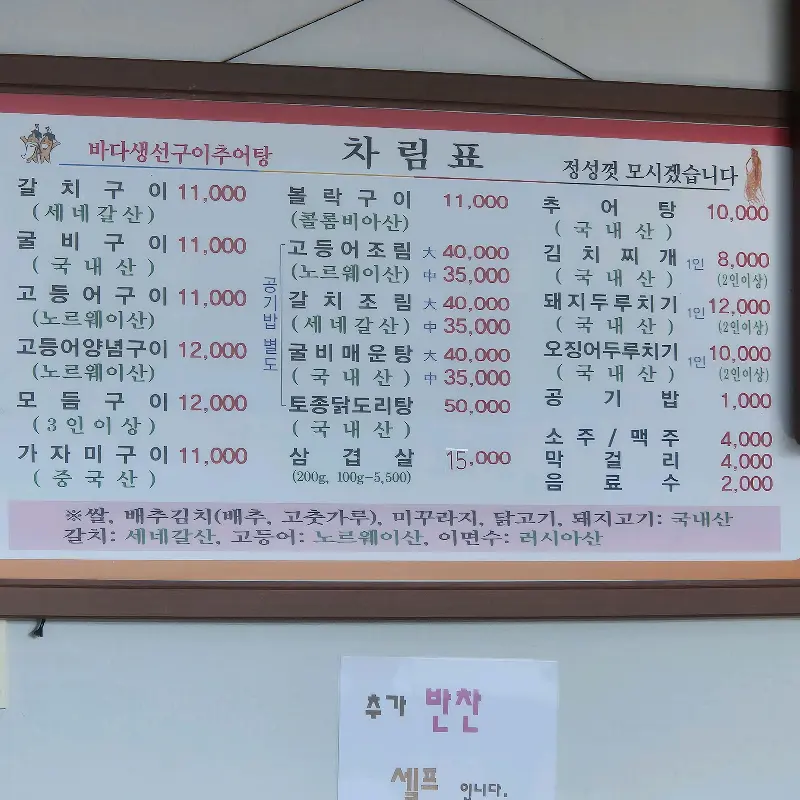 바다생선구이추어탕
차림표
정성껏 모시겠습니다
갈치구이 11,000
(세네갈산)
굴비구이 11,000
(국내산)
고등어구이 11,000
(노르웨이산)
고등어양념구이 12,000
(노르웨이산)
모듬구이 12,000
(3인이상)
가자미구이 11,000
(중국산)
볼락구이 11,000
(콜롬비아산)
공기밥 별도
고등어조림 大 40,000
(노르웨이산) 中 35,000
갈치조림 大 40,000
(세네갈산) 中 35,000
굴비매운탕 大 40,000
(국내산) 中 35,000
토종닭도리탕 50,000
(국내산)
삼겹살 15,000
(200g, 100g-5,500)
추어탕 10,000
(국내산)
김치찌개 1인 8,000
(국내산) (2인이상)
돼지두루치기 1인 12,000
(국내산) (2인이상)
오징어두루치기 1인 10,000
(국내산) (2인이상)
공기밥 1,000
소주/맥주 4,000
막걸리 4,000
음료수 2,000
※쌀, 배추김치(배추, 고춧가루), 미꾸라지, 닭고기, 돼지고기: 국내산
갈치: 세네갈산, 고등어: 노르웨이산, 이면수: 러시아산
추가 반찬
셀프 입니다.